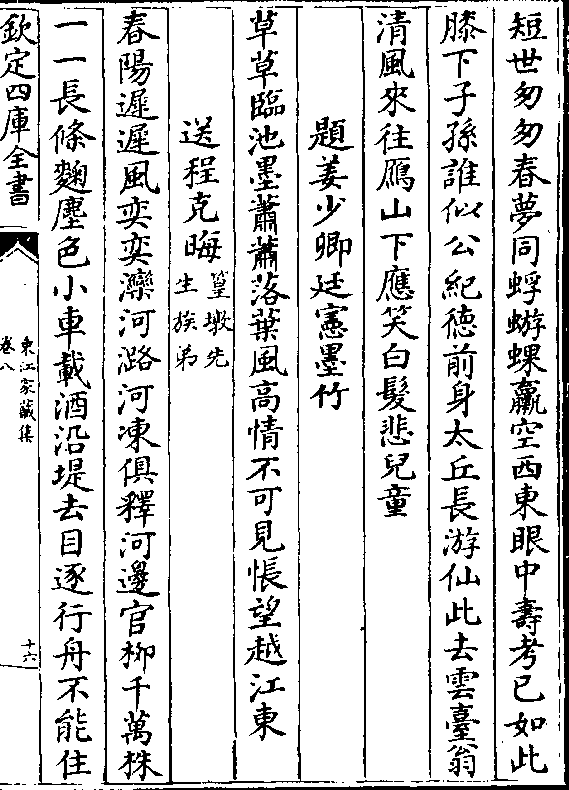 短世匆匆春夢同蜉蝣蜾蠃空西東眼中壽考已如此
膝下子孫誰似公紀德前身太丘長游仙此去雲臺翁
清風來往鴈山下應笑白髮悲兒童
題姜少卿廷憲墨竹
草草臨池墨蕭蕭落葉風高情不可見悵望越江東
送程克晦篁墩先生族弟
春陽遲遲風奕奕灤河潞河凍俱釋河邊官柳千萬株
一一長條麴塵色小車載酒沿堤去目逐行舟不能住
欽定四庫全書
東江家藏集
卷八
十六